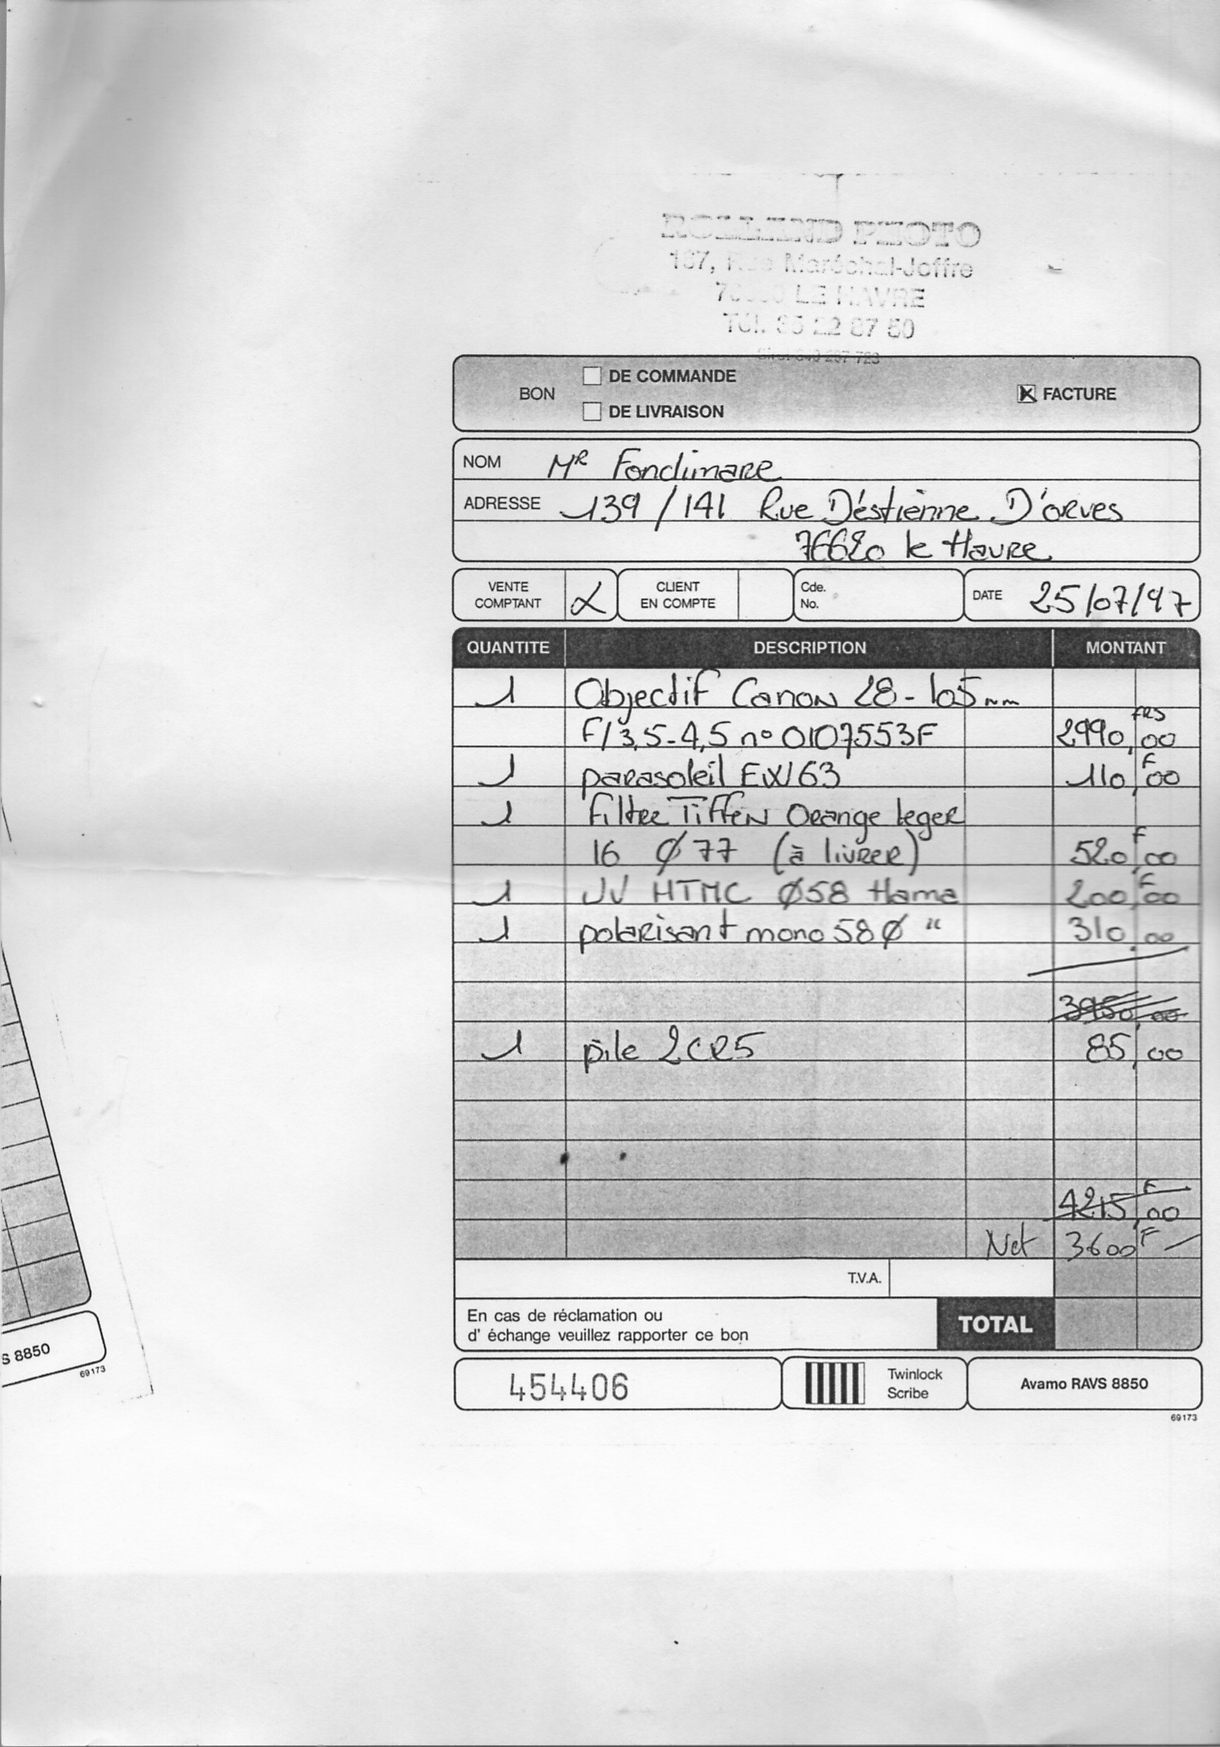 ROLLAND PHOTO
137, Rue Maréchal-Joffre
LE HAVRE
Tél. 35 22 87 60
BON
DE COMMANDE
DE LIVRAISON
FACTURE
NOM Mr Fondimare
ADRESSE 139/141 Rue Déstienne D'orves
76620 le Havre
VENTE COMPTANT
CLIENT EN COMPTE
Cde. No.
DATE 25/07/97
QUANTITE DESCRIPTION MONTANT
1 Objectif Canon 28-105mm
F/3,5-4,5 n° 0107553F 2990,00 frs
1 parasoleil EW63 110,00 F
1 Filtre Tiffen Orange leger
16 Ø 77 (à livrer) 520,00 F
1 UV HTMC Ø58 Hama 200,00 F
1 polarisant mono 58 Ø " 310,00
3950,00
1 pile 2CR5 85,00
4215,00 F
Net 3600 F
T.V.A.
En cas de réclamation ou
d' échange veuillez rapporter ce bon
TOTAL
454406
Twinlock
Scribe
Avamo RAVS 8850
69173
S 8850
69173